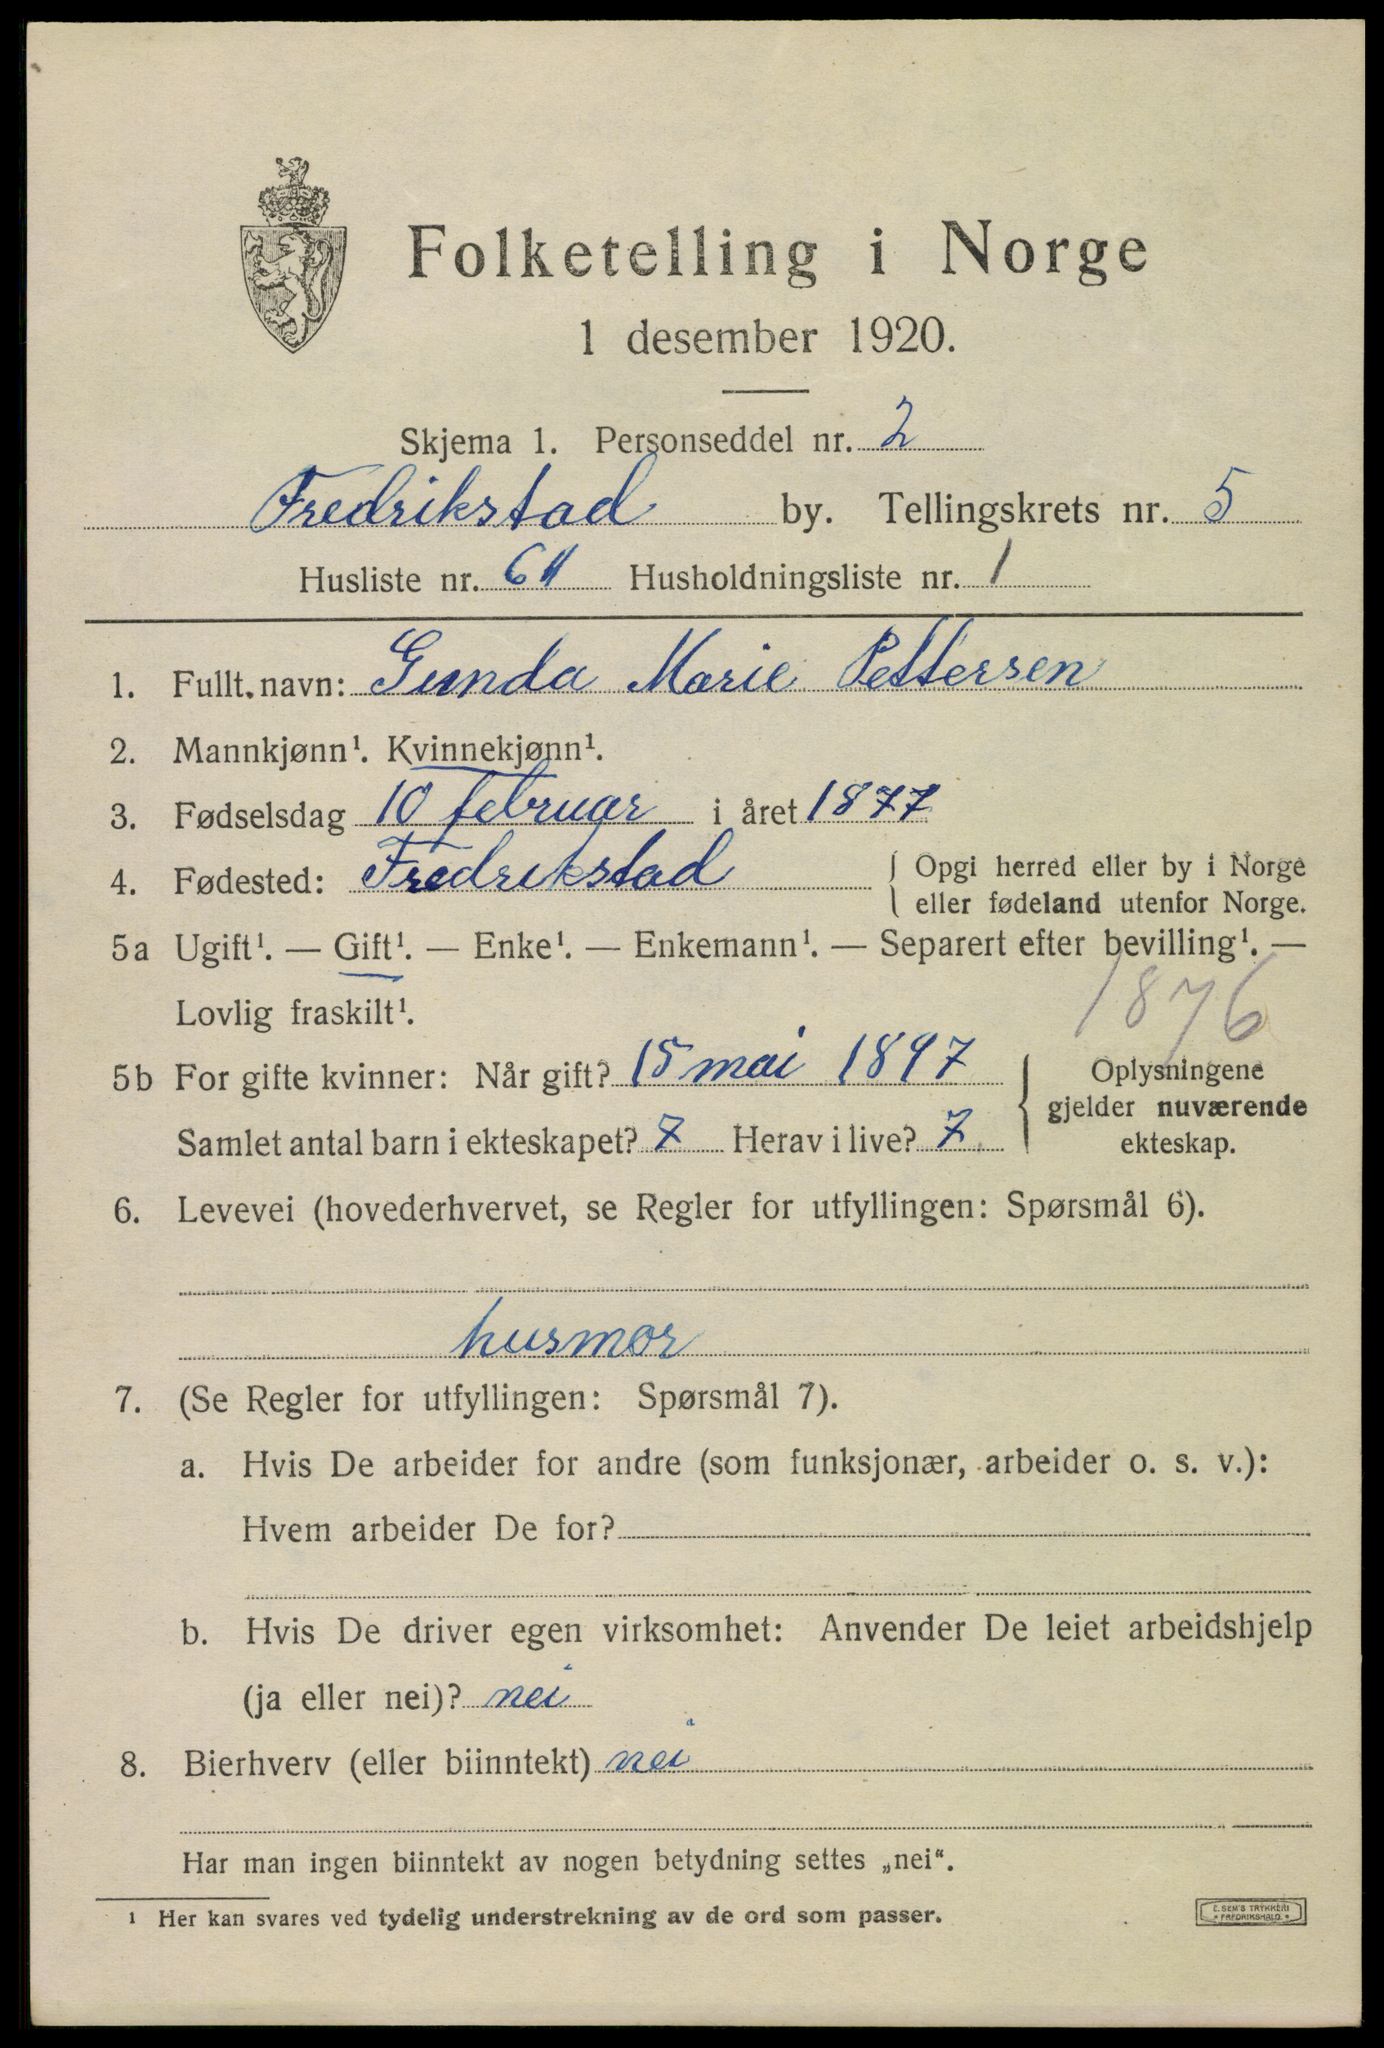 Folketelling i Norge
1 desember 1920.
Skjema 1. Personseddel nr. 2
Fredrikstad by. Tellingskrets nr. 5
Husliste nr. Husholdningsliste nr. 1
1. Fullt navn: Gunda Marie Pettersen
2. Mannkjønn¹. Kvinnekjønn¹.
3. Fødselsdag 10 februar i året 1877
4. Fødested: Fredrikstad { Opgi herred eller by i Norge
eller fødeland utenfor Norge.
5a Ugift¹. — Gift¹. — Enke¹. — Enkemann¹. — Separert efter bevilling¹. —
Lovlig fraskilt¹.
1876
5b For gifte kvinner: Når gift? 15 mai 1897
Samlet antal barn i ekteskapet? 7 Herav i live? 7
} Oplysningene
gjelder nuværende
ekteskap.
6. Levevei (hovederhvervet, se Regler for utfyllingen: Spørsmål 6).
husmor
7. (Se Regler for utfyllingen: Spørsmål 7).
a. Hvis De arbeider for andre (som funksjonær, arbeider o. s. v.):
Hvem arbeider De for?
b. Hvis De driver egen virksomhet: Anvender De leiet arbeidshjelp
(ja eller nei)? nei
8. Bierhverv (eller biinntekt) nei
Har man ingen biinntekt av nogen betydning settes „nei“.
¹ Her kan svares ved tydelig understrekning av de ord som passer.
E. SEM'S TRYKKERI
• FREDRIKSHALD •